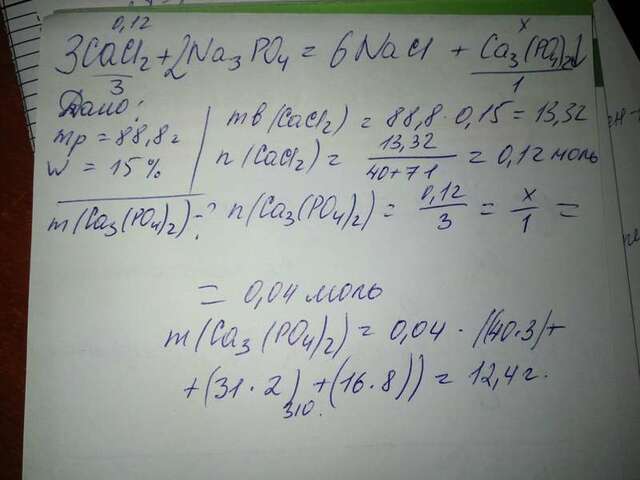 0,12 x
3CaCl2 + 2Na3PO4 = 6NaCl + Ca3(PO4)2↓
3 1
Дано:
mр = 88,8 г
w = 15%
m(Ca3(PO4)2) - ?
mв(CaCl2) = 88,8 · 0,15 = 13,32
n(CaCl2) = 13,32 / 40+71 = 0,12 моль
n(Ca3(PO4)2) = 0,12 / 3 = x / 1 =
= 0,04 моль
m(Ca3(PO4)2) = 0,04 · ((40·3)+
+(31·2)+(16·8)) = 12,4 г.
310.